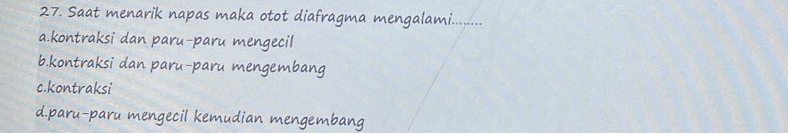 27. Saat menarik napas maka otot diafragma mengalami........
a.kontraksi dan paru-paru mengecil
b.kontraksi dan paru-paru mengembang
c.kontraksi
d.paru-paru mengecil kemudian mengembang